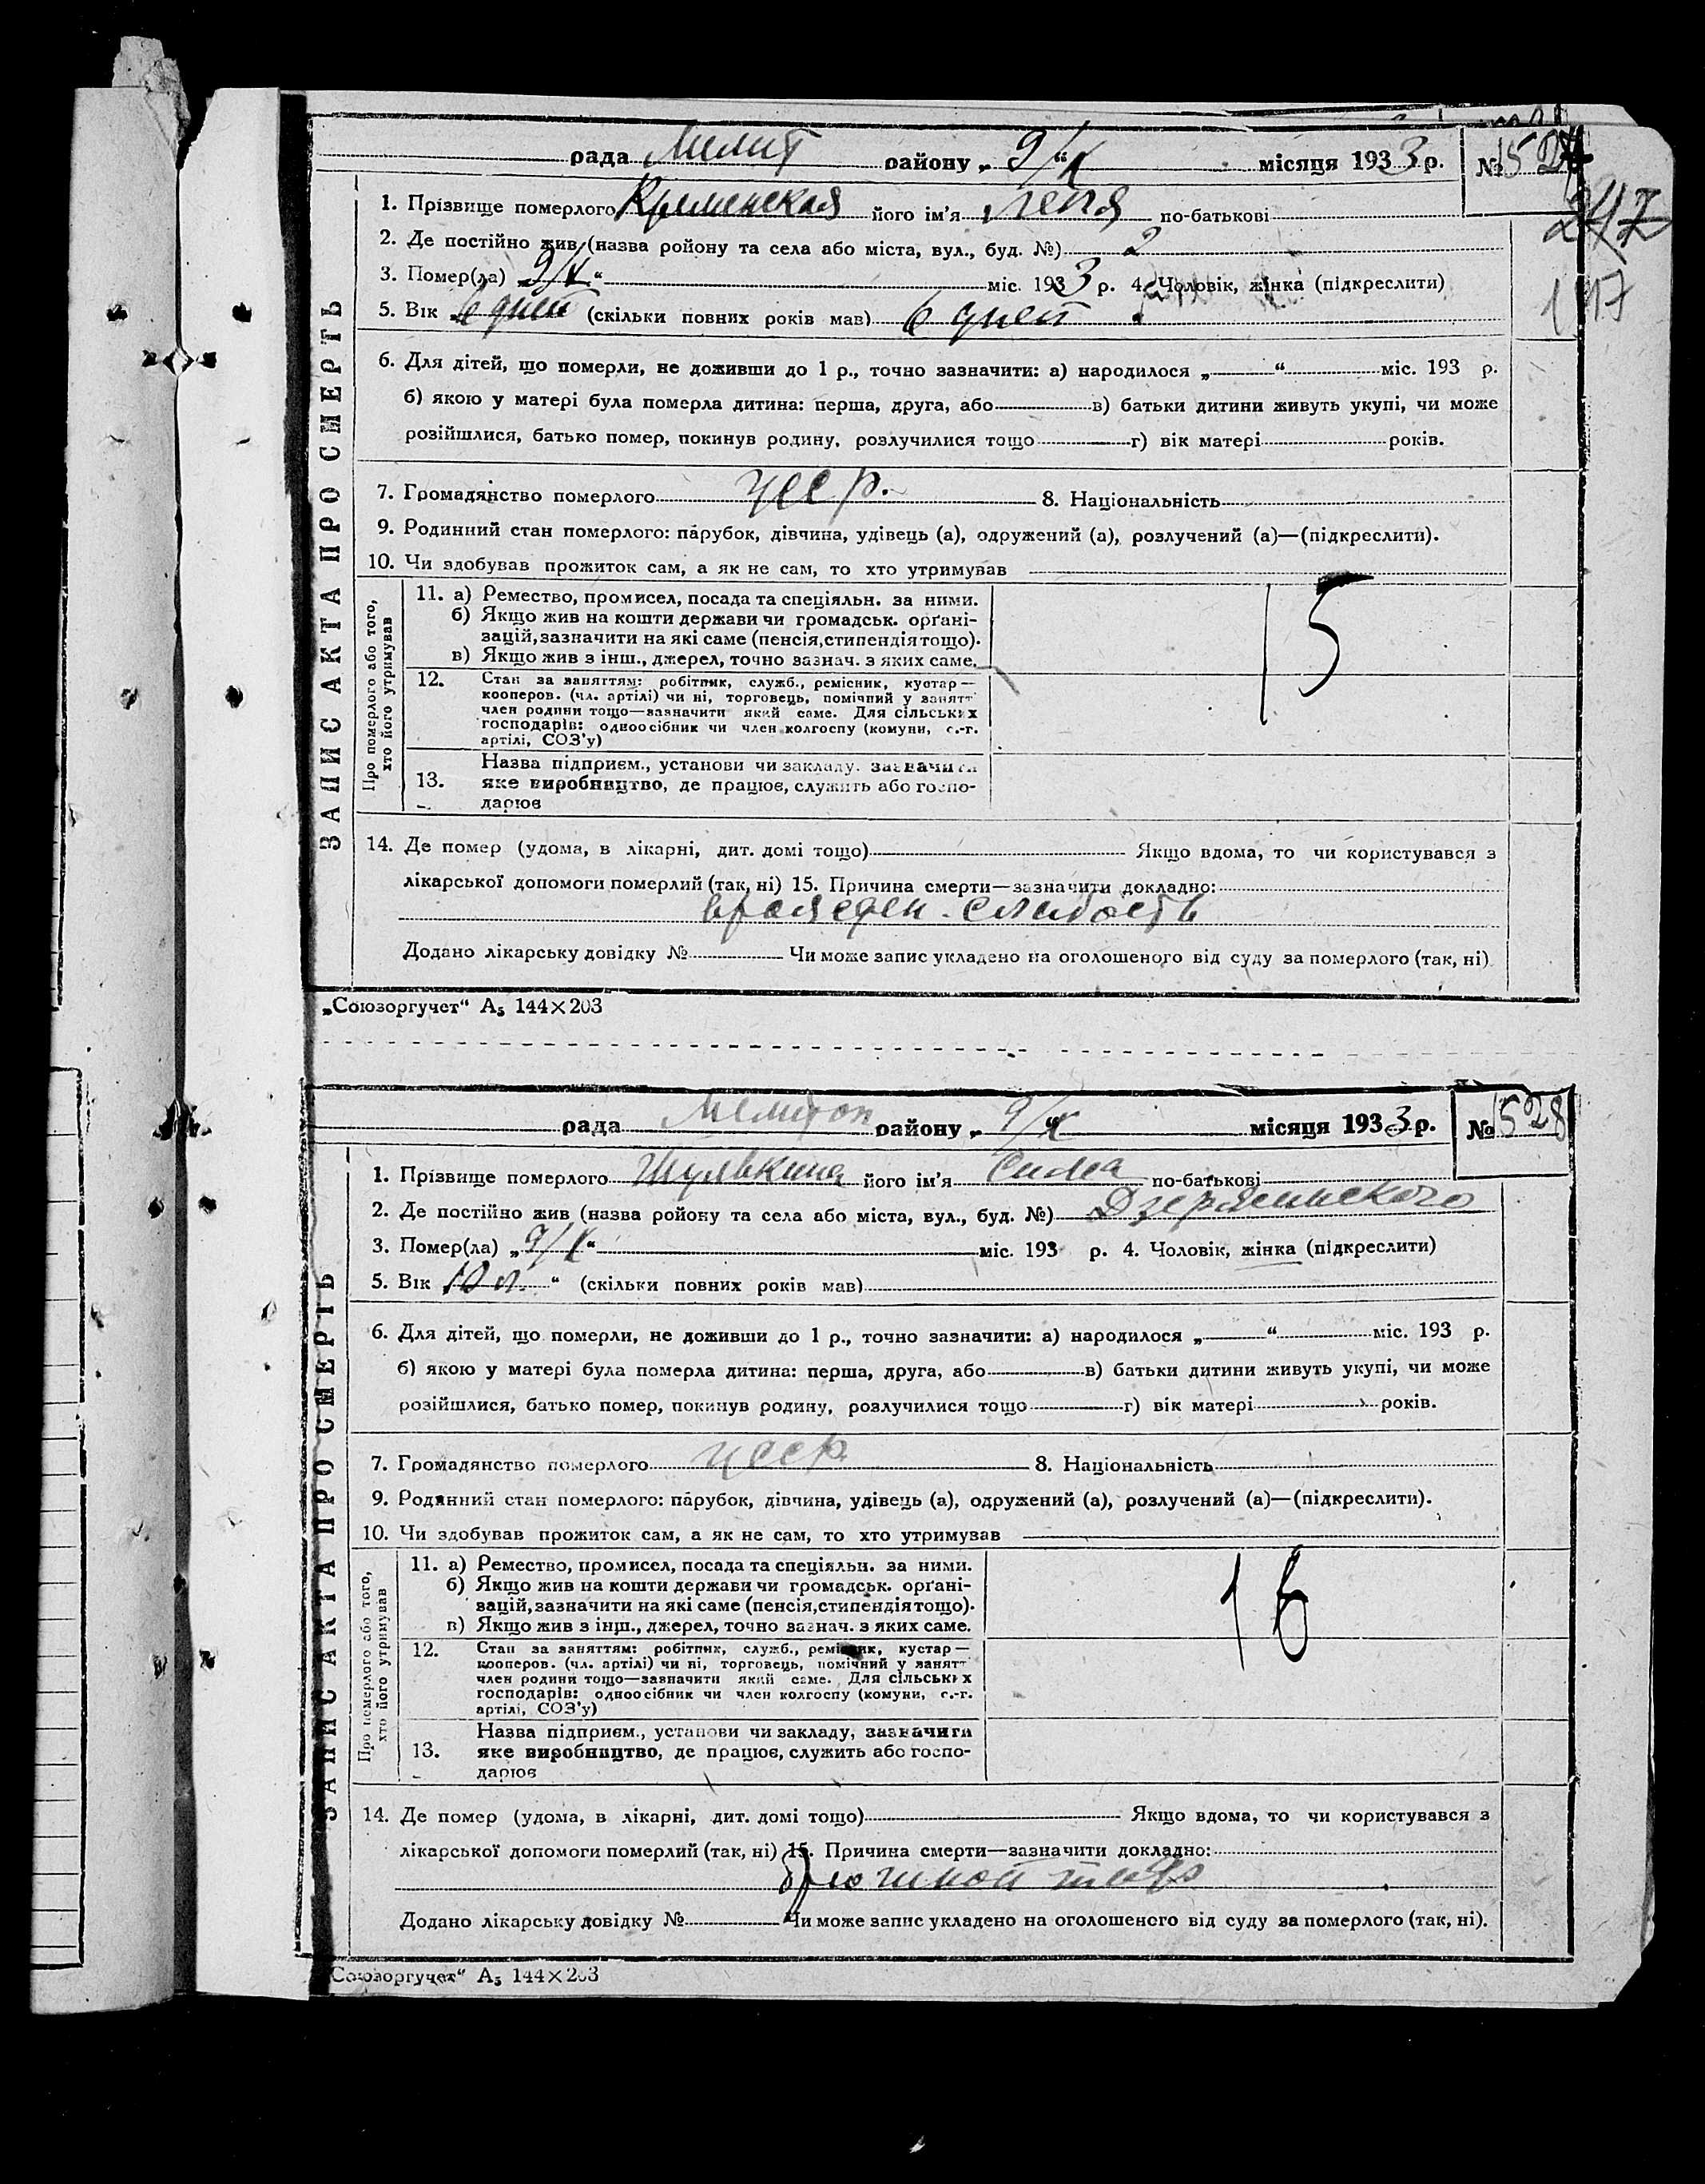 рада Мелит району „ 9/X “ місяця 1933 р. № 1527
247
117
ЗАПИС АКТА ПРО СМЕРТЬ
1. Прізвище померлого Кременская його ім'я Леня по-батькові
2. Де постійно жив (назва ройону та села або міста, вул., буд. №) 2
3. Помер(ла) „9/X“ міс. 1933 р. 4. Чоловік, жінка (підкреслити)
5. Вік 6 дней (скільки повних років мав) 6 дней
6. Для дітей, що померли, не доживши до 1 р., точно зазначити: а) народилося „ “ міс. 193 р.
б) якою у матері була померла дитина: перша, друга, або в) батьки дитини живуть укупі, чи може
розійшлися, батько помер, покинув родину, розлучилися тощо г) вік матері років.
7. Громадянство померлого усср. 8. Національність
9. Родинний стан померлого: парубок, дівчина, удівець (а), одружений (а), розлучений (а)—(підкреслити).
10. Чи здобував прожиток сам, а як не сам, то хто утримував
Про померлого або того, хто його утримував
11. а) Ремество, промисел, посада та спеціяльн. за ними.
б) Якщо жив на кошти держави чи громадськ. орґані-
зацій, зазначити на які саме (пенсія, стипендія тощо).
в) Якщо жив з інш., джерел, точно вазнач. з яких саме.
15
12. Стан за заняттям: робітник, служб., ремісник, кустар—
кооперов. (чл. артілі) чи ні, торговець, помічний у занятт
член родини тощо—зазначити який саме. Для сільських
господарів: одноосібник чи член колгоспу (комуни, с.-г.
артілі, СОЗ'у)
13. Назва підприєм., установи чи закладу. зазначити
яке виробництво, де працює, служить або госпо-
дарює
14. Де помер (удома, в лікарні, дит. домі тощо) Якщо вдома, то чи користувався з
лікарської допомоги померлий (так, ні) 15. Причина смерти—зазначити докладно:
врожден. слабость
Додано лікарську довідку № Чи може запис укладено на оголошеного від суду за померлого (так, ні)
„Союзоргучет“ А₅ 144×203
рада Мелитоп району „ 9/X “ місяця 1933 р. № 1528
ЗАПИС АКТА ПРО СМЕРТЬ
1. Прізвище померлого Шулькина його ім'я Сима по-батькові
2. Де постійно жив (назва ройону та села або міста, вул., буд. №) Дзержинского
3. Помер(ла) „9/X“ міс. 193 р. 4. Чоловік, жінка (підкреслити)
5. Вік 10 л. “ (скільки повних років мав)
6. Для дітей, що померли, не доживши до 1 р., точно зазначити: а) народилося „ “ міс. 193 р.
б) якою у матері була померла дитина: перша, друга, або в) батьки дитини живуть укупі, чи може
розійшлися, батько помер, покинув родину, розлучилися тощо г) вік матері років.
7. Громадянство померлого усср 8. Національність
9. Родинний стан померлого: парубок, дівчина, удівець (а), одружений (а), розлучений (а)—(підкреслити).
10. Чи здобував прожиток сам, а як не сам, то хто утримував
Про померлого або того, хто його утримував
11. а) Ремество, промисел, посада та спеціяльн. за ними.
б) Якщо жив на кошти держави чи громадськ. орґані-
зацій, зазначити на які саме (пенсія, стипендія тощо).
в) Якщо жив з інш., джерел, точно вазнач. з яких саме.
16
12. Стан за заняттям: робітник, служб., ремісник, кустар—
кооперов. (чл. артілі) чи ні, торговець, помічний у занятт
член родини тощо—зазначити який саме. Для сільських
господарів: одноосібник чи член колгоспу (комуни, с.-г.
артілі, СОЗ'у)
13. Назва підприєм., установи чи закладу, зазначити
яке виробництво, де працює, служить або госпо-
дарює
14. Де помер (удома, в лікарні, дит. домі тощо) Якщо вдома, то чи користувався з
лікарської допомоги померлий (так, ні) 15. Причина смерти—зазначити докладно:
брюшной тиф
Додано лікарську довідку № Чи може запис укладено на оголошеного від суду за померлого (так, ні).
Союзоргучет“ А₅ 144×203